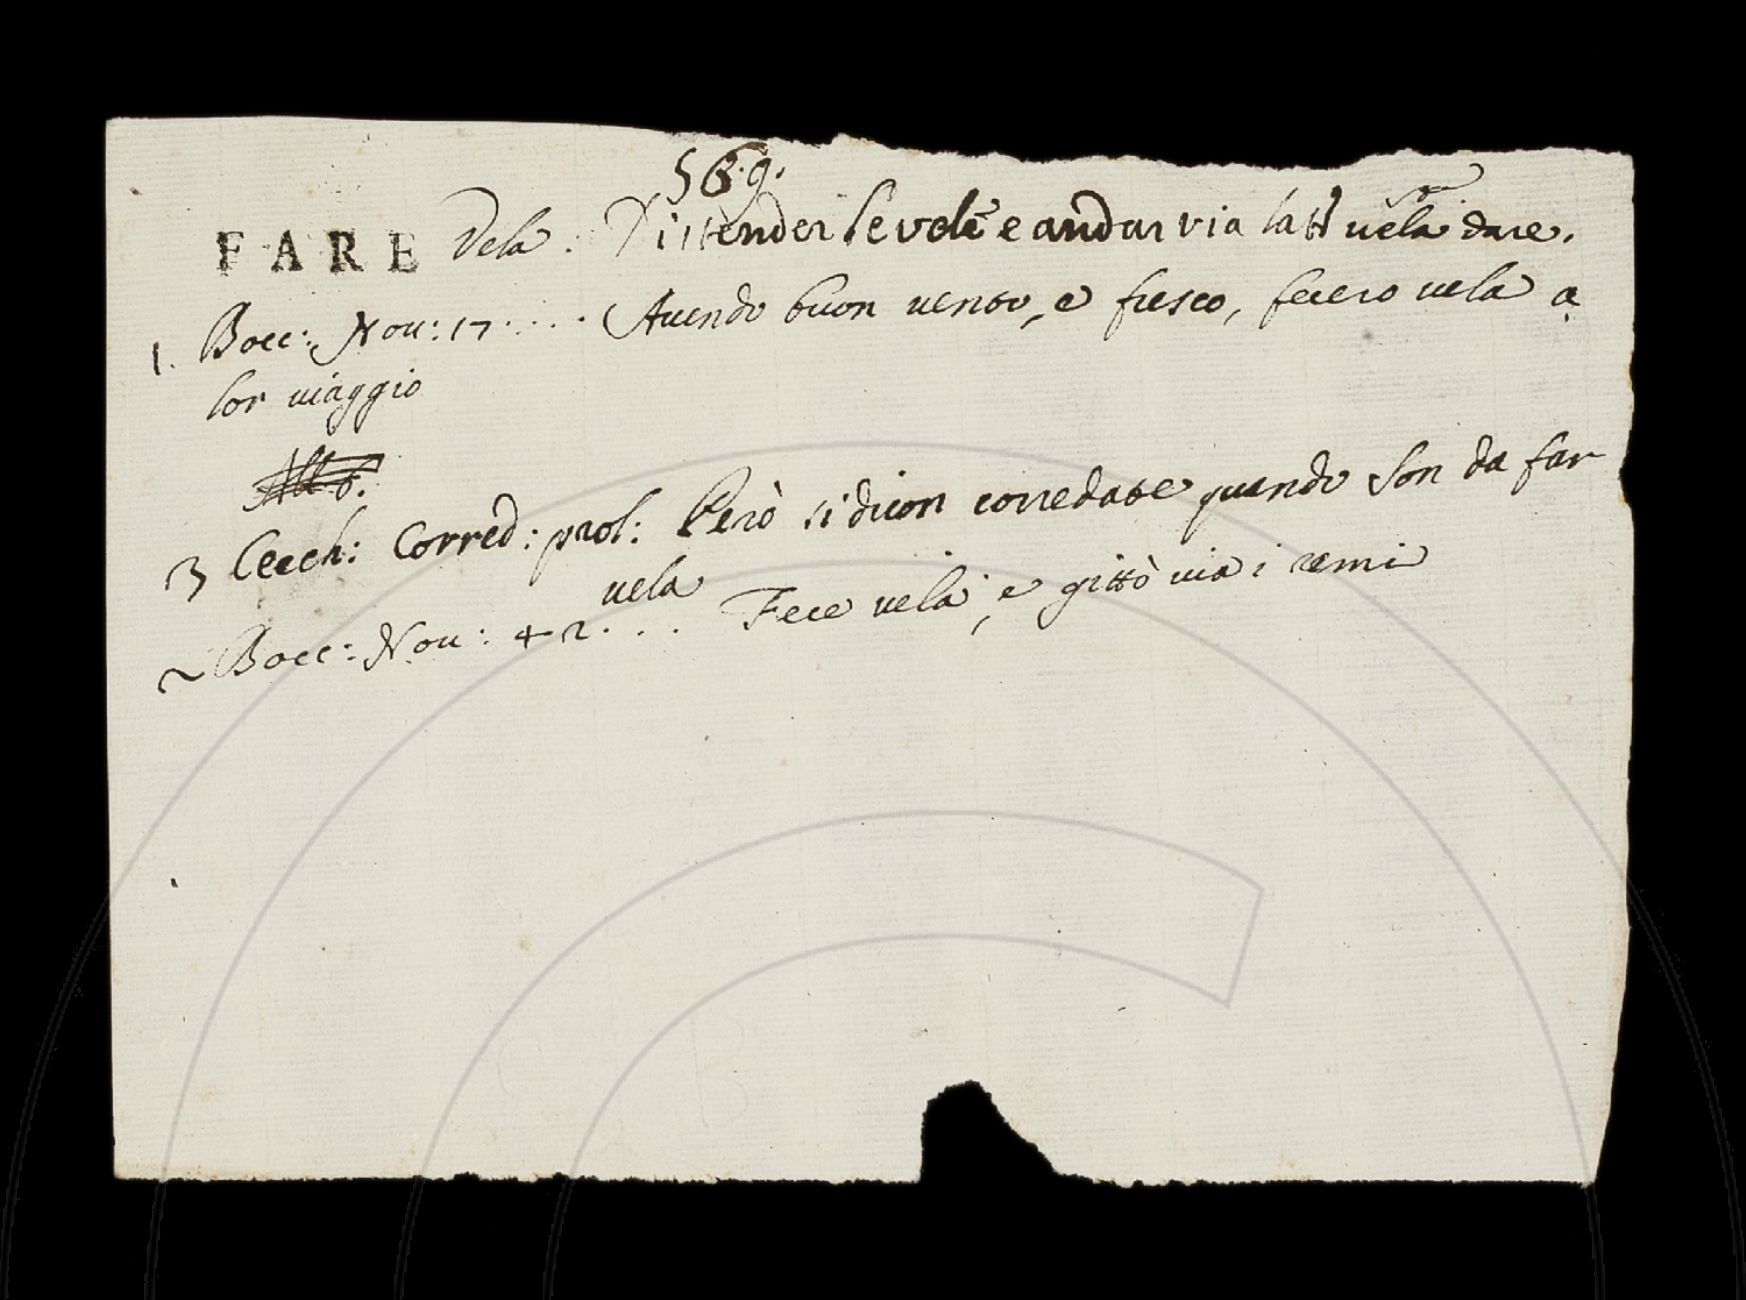 569.
FARE Vela. Distender le vele e andar via latt vela dare.
1. Bocc: Nov: 17. . . . . Avendo buon vento, e fresco, fecero vela a
lor viaggio
3 Cecch: Corred: prol: Però si dicon corredate quando son da far
vela
2 Bocc: Nov: 42. . . . Fece vela, e gittò via i remi